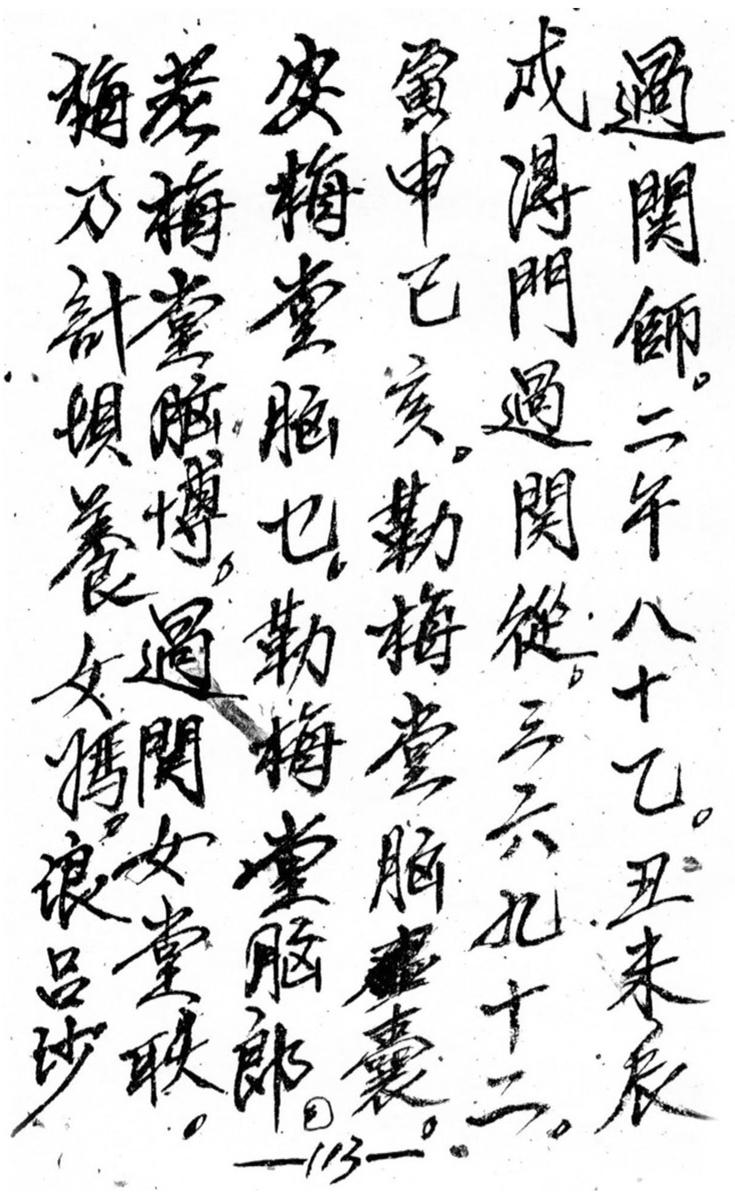 過関師。二午八十乙。丑未辰
戌得門過関從。三六九十二。
寅申已亥。勒梅堂脳囊。
安梅堂脳乜。勒梅堂脳郎。
老梅堂脳博。過関女堂联。
梅乃計垻養女媽。浪吕沙
—113—